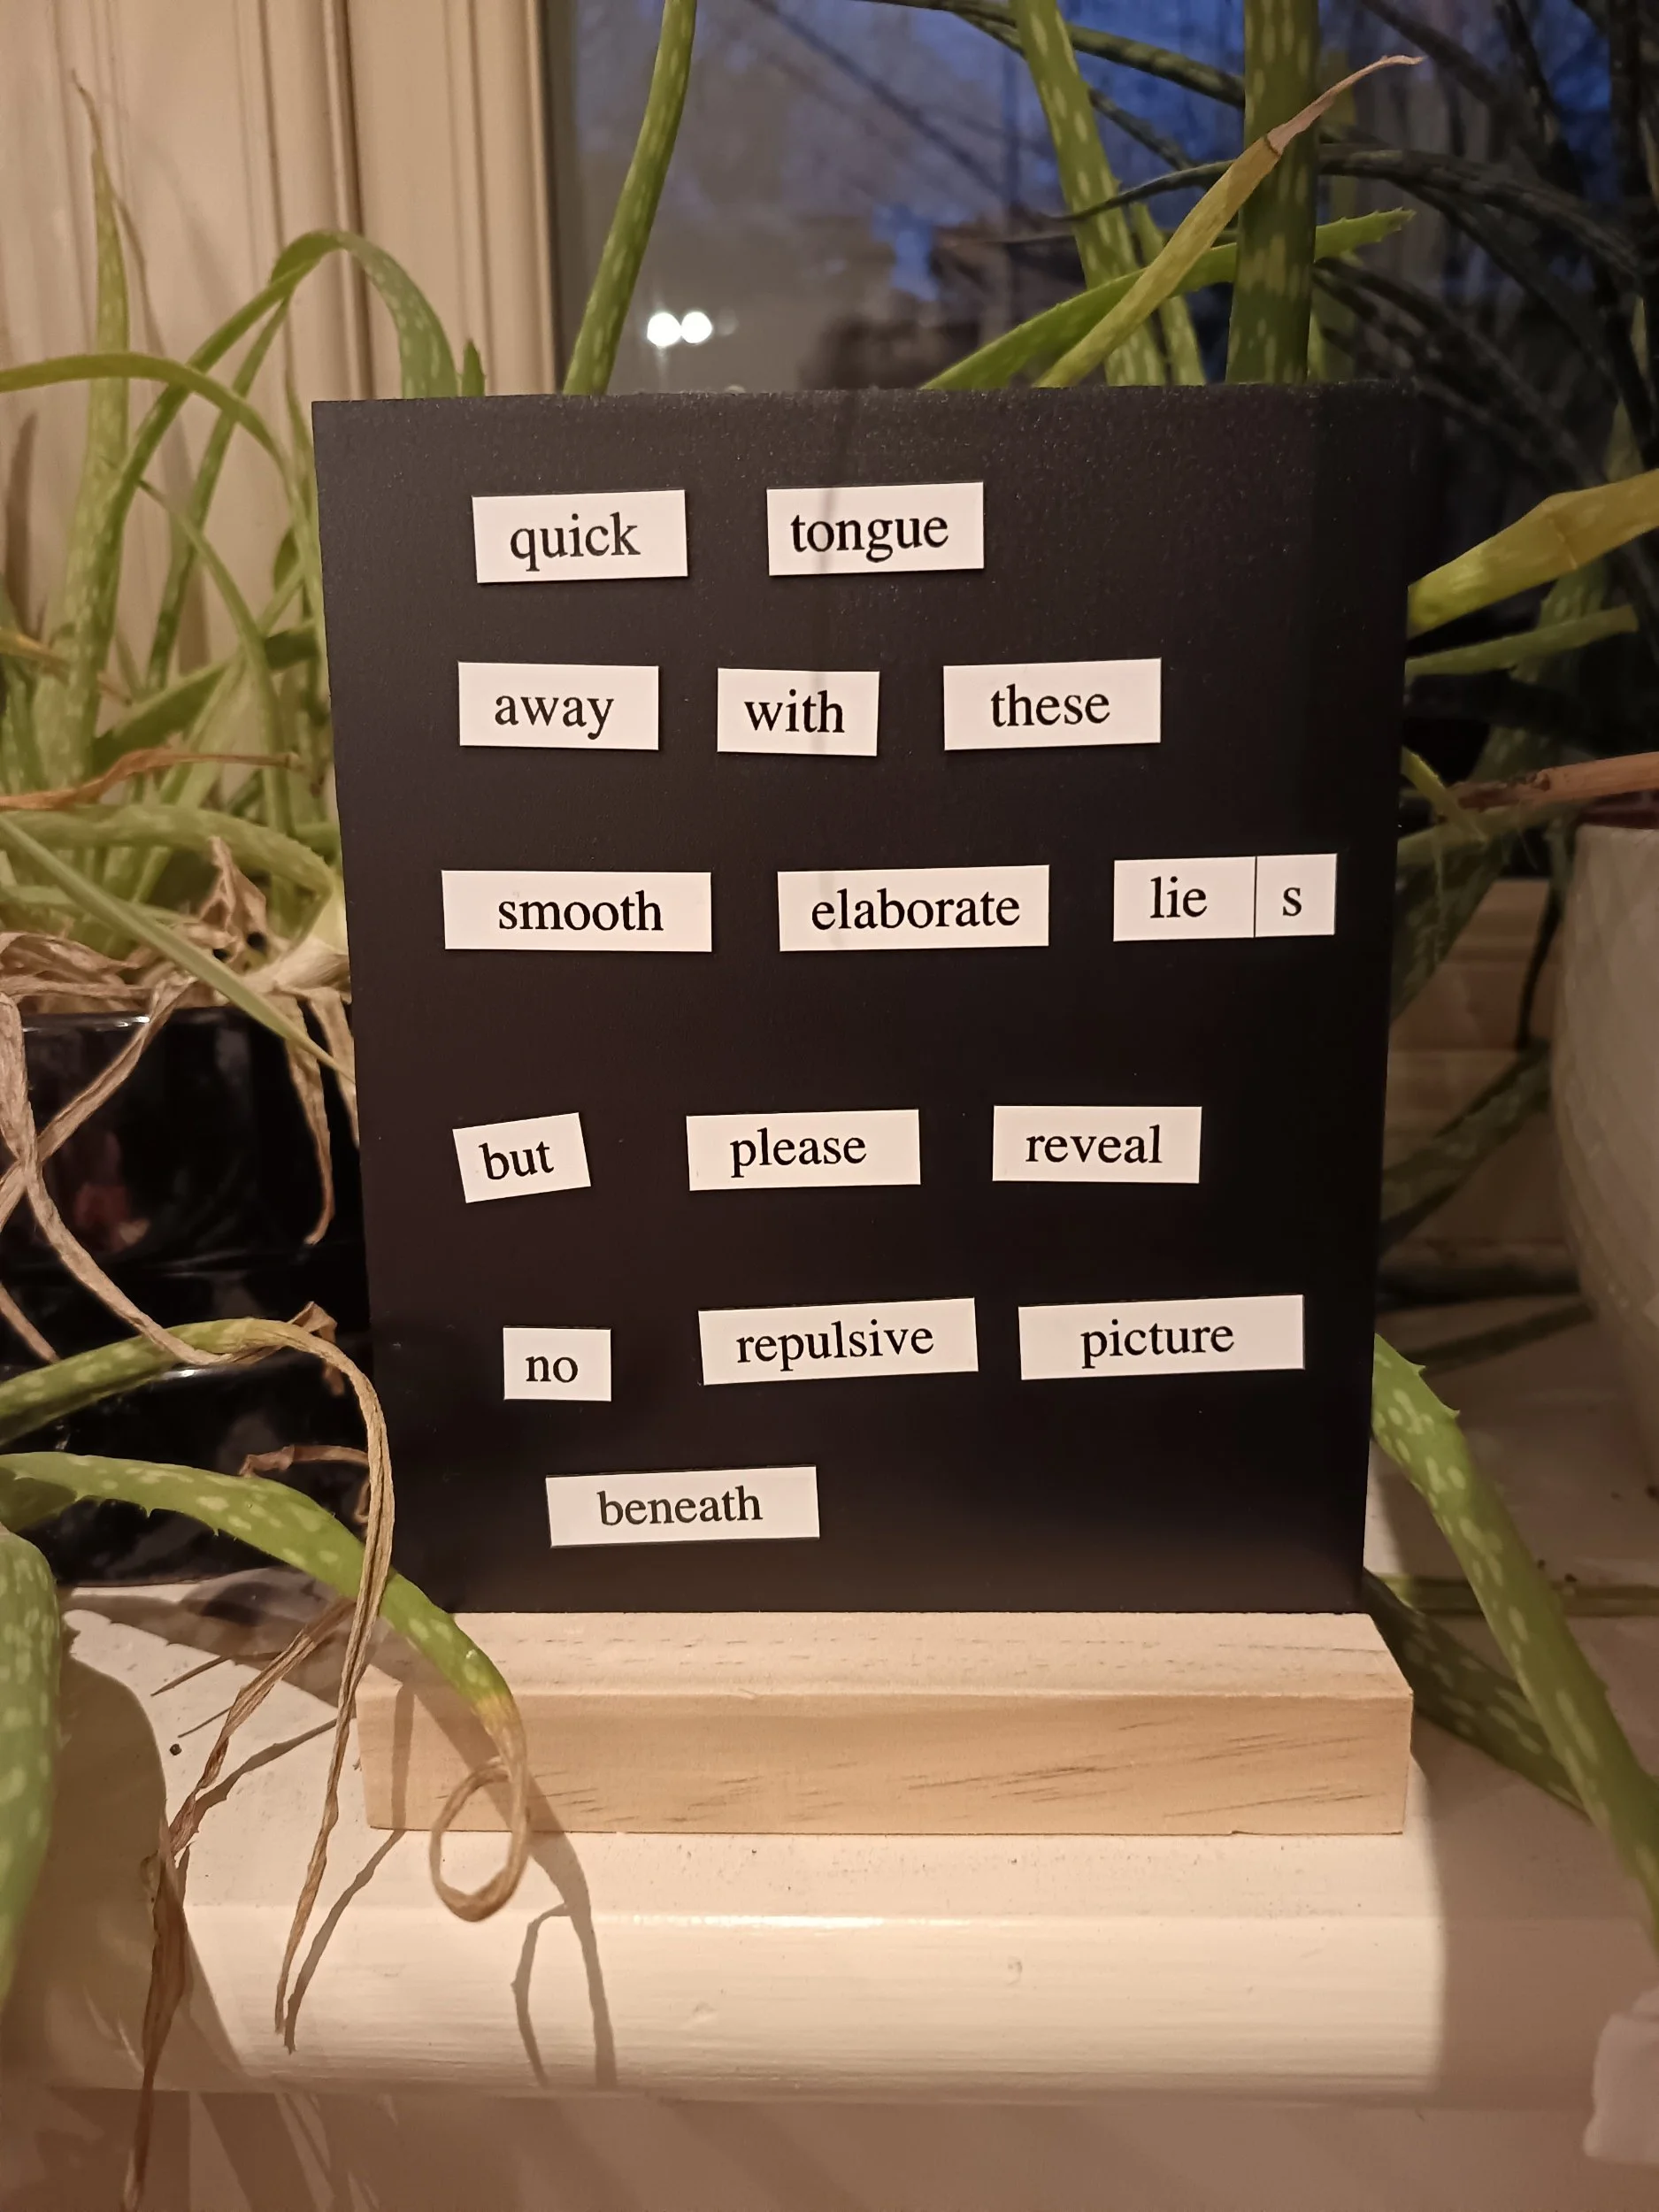 quick tongue
away with these
smooth elaborate lie s
but please reveal
no repulsive picture
beneath